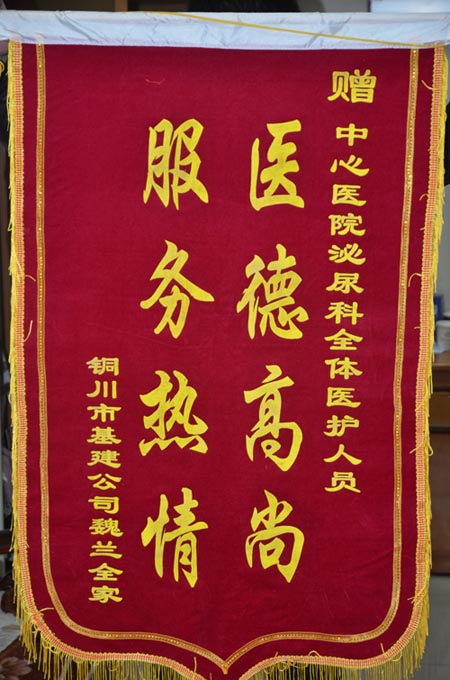 赠 中心医院泌尿科全体医护人员
医德高尚
服务热情
铜川市基建公司魏兰全家